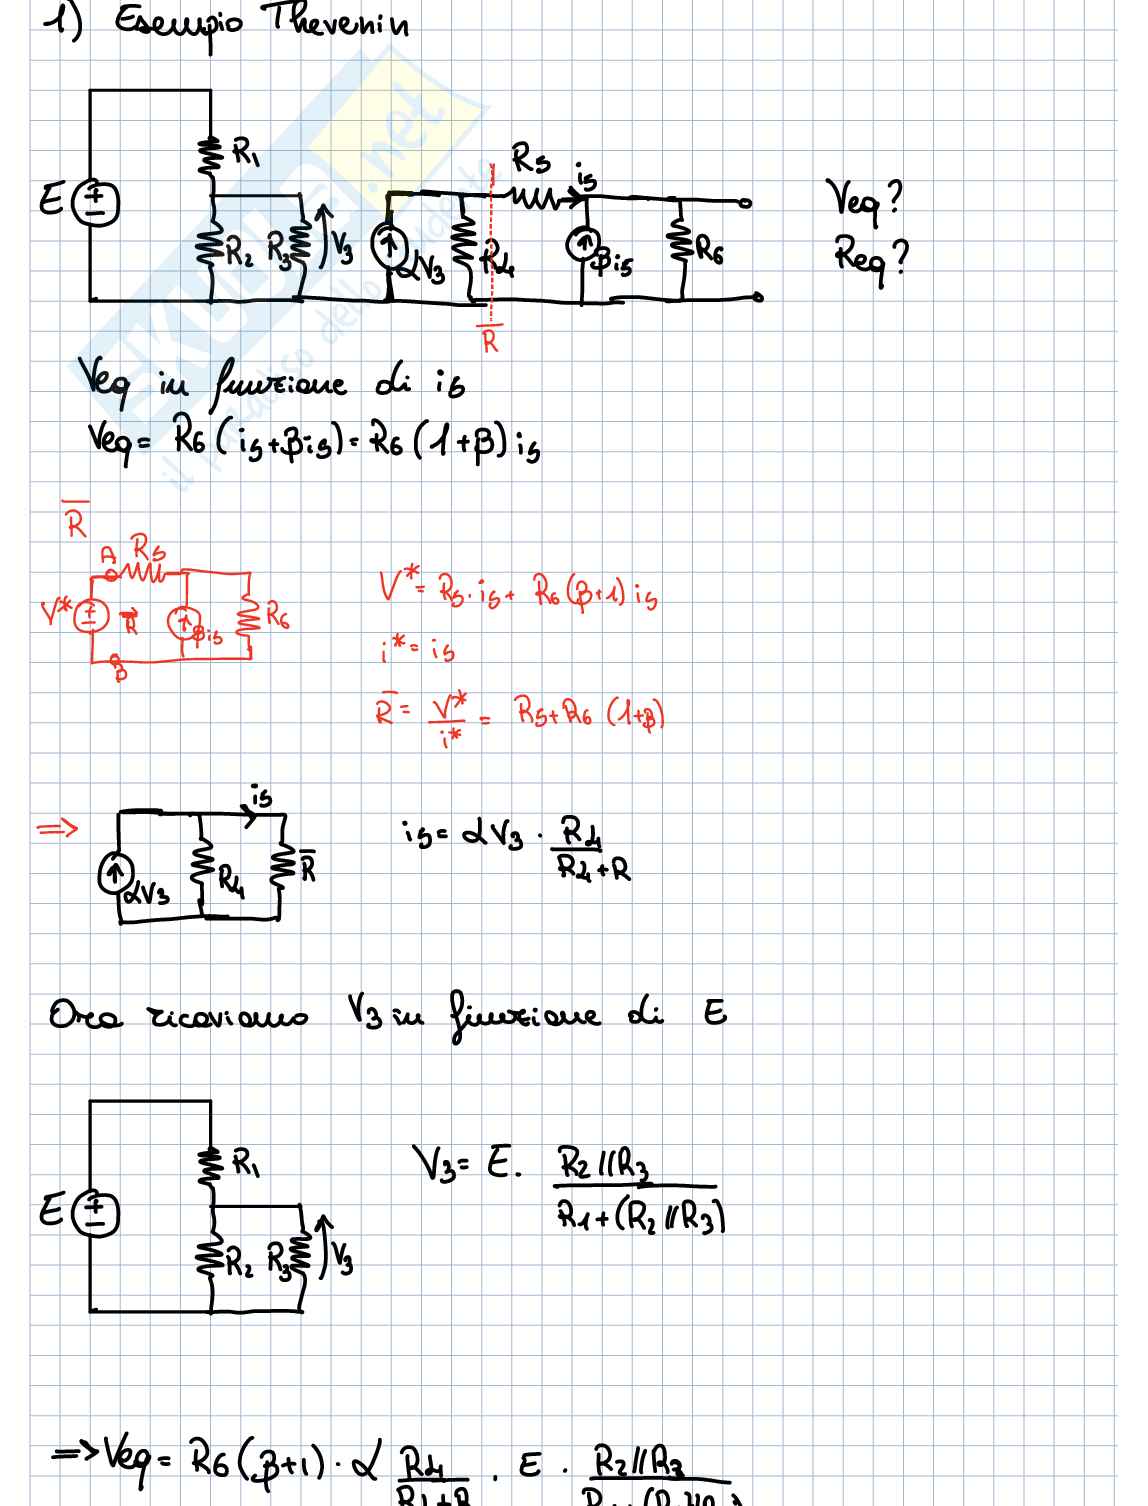 1) Esempio Thevenin
R1
E
R2
R3
V3
αV3
R4
R5
i5
βi5
R6
R̅
Veq?
Req?
Veq in funzione di i5
Veq= R6 (i5+βi5)= R6 (1+β) i5
R̅
A
R5
V*
R̅
βi5
R6
B
V*= R5 · i5 + R6 (β+1) i5
i*= i5
R̅ = V*/i* = R5+R6 (1+β)
⇒
i5
αV3
R4
R̅
i5= αV3 · R4/R4+R
Ora ricaviamo V3 in funzione di E
R1
E
R2
R3
V3
V3= E · R2//R3 / R1+(R2//R3)
⇒ Veq= R6 (β+1) · α R4/R4+R · E · R2//R3
skuola.net
il paradiso dello studente